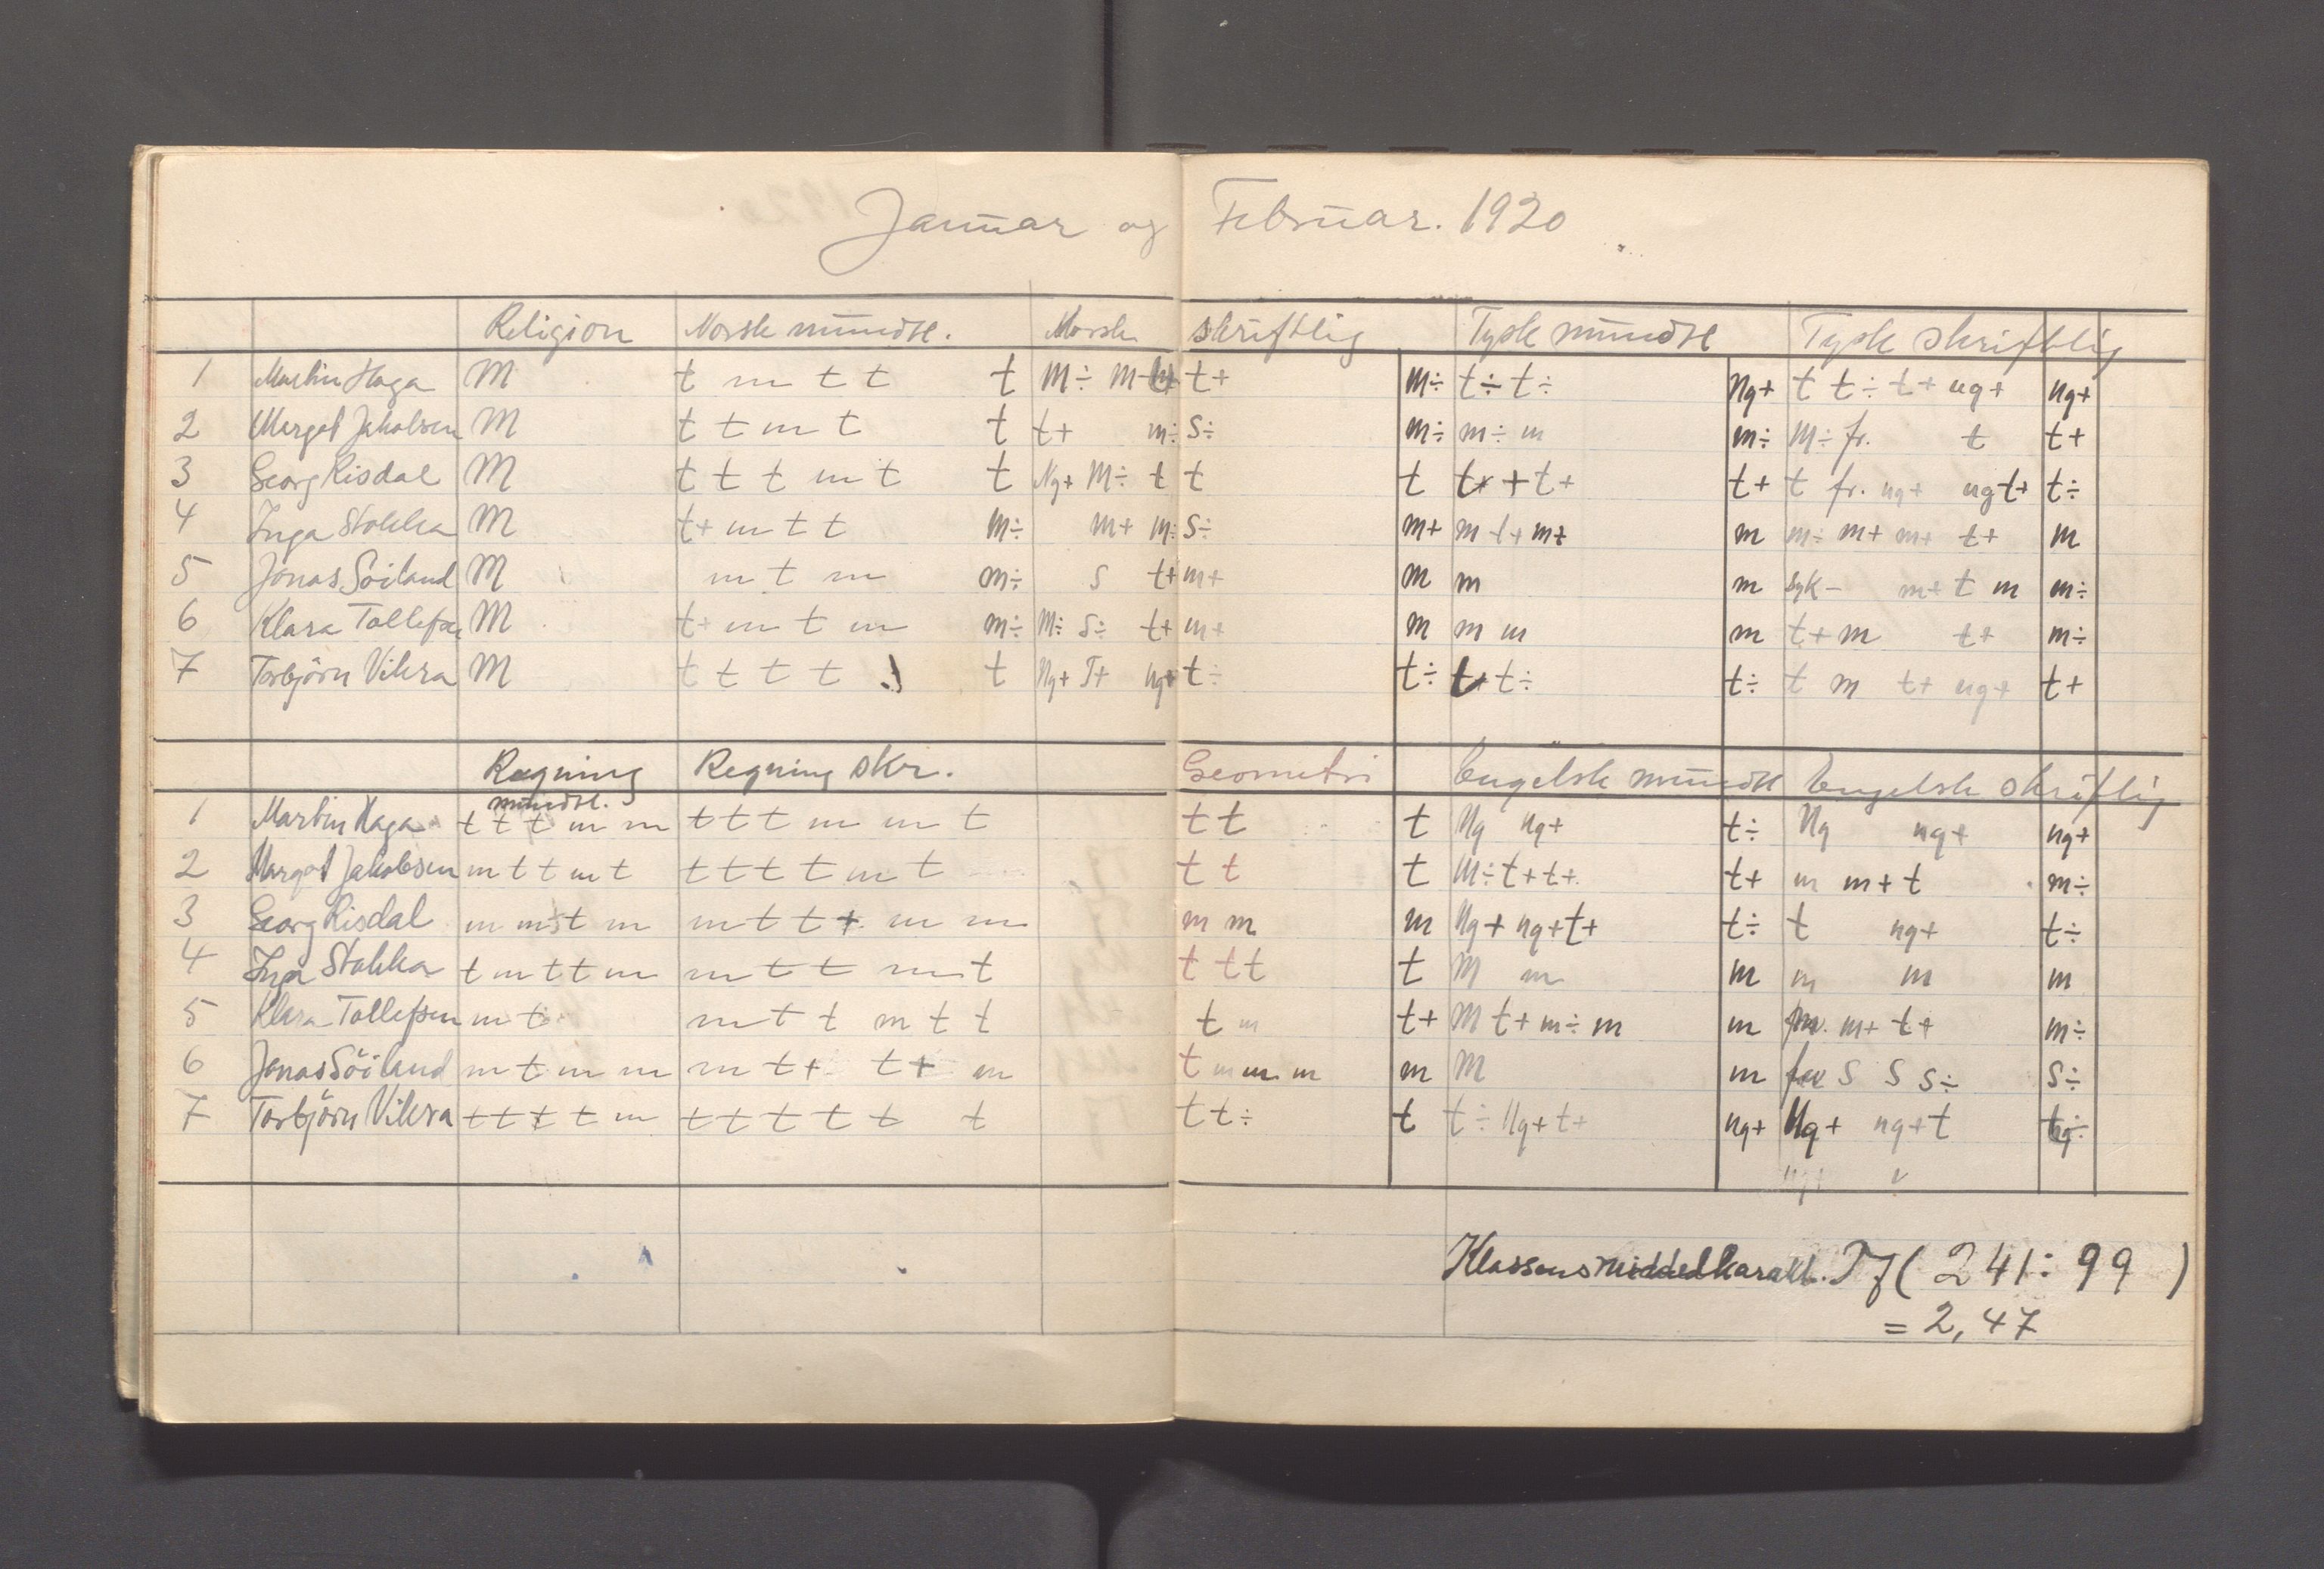 Januar og Februar. 1920
Religion Norsk mündtl. Norsk skriftlig Tysk mündtl Tysk skriftlig
1 Martin Haga M t m t t t M÷ M t+ M÷ t÷ t÷ Ng+ t t÷ t+ ng+ ng+
2 Margot Jakobsen M t t m t t t+ m÷ S÷ m÷ m÷ m m÷ M÷ fr. t t+
3 Georg Risdal M t t t m t t Ng+ M÷ t t t t+ + t+ t+ t fr. ng+ ng t+ t÷
4 Inga Stokka M t+ m t t M÷ m+ m÷ S÷ m+ m t+ m+ m m÷ m+ m+ t+ m
5 Jonas Söiland M m t m m÷ S t+ m+ m m m syk – m+ t m m÷
6 Klara Tollefsen M t+ m t m m÷ M÷ S÷ t+ m+ m m m m t+ m t+ m÷
7 Torbjörn Vikra M t t t t t Ng+ T+ ng+ t÷ t÷ t+ t÷ t÷ t m t+ ng+ t+
Regning mündtl. Regning skr. Geometri Engelsk mündtl Engelsk skriftlig
1 Martin Haga t t t m m t t t m m t t t t Ng ng+ t÷ Ng ng+ ng+
2 Margot Jakobsen m t t m t t t t t m t t t t M÷ t+ t+ t+ m m+ t m÷
3 Georg Risdal m m t m m t t + m m m m m Ng+ ng+ t+ t÷ t ng+ t÷
4 Inga Stokka t m t t m m t t m t t t t t M m m m m m
5 Klara Tollefsen m t m t t m t t t m t+ M t+ m÷ m m m+ t+ m÷
6 Jonas Söiland m t m m m t+ t+ m t m m m m M m S S S÷ S÷
7 Torbjörn Vikra t t t t m t t t t t t t t÷ t t÷ Ng+ t+ ng+ Ng+ ng+ t
Klassens middelkarakt. Tf (241:99)
= 2,47